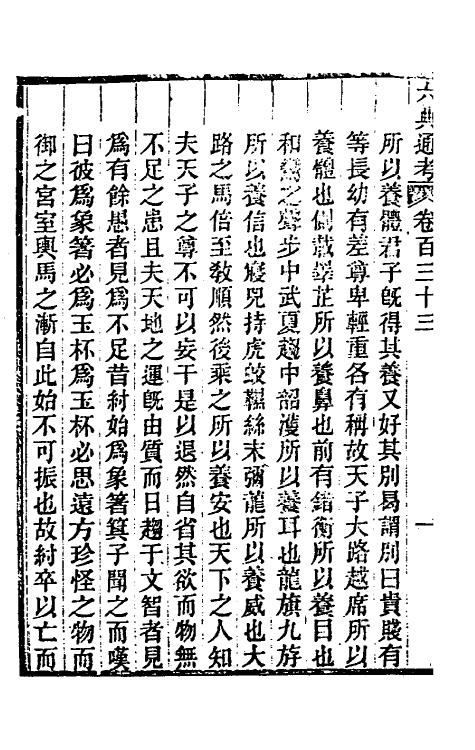 六典通考 卷百三十三 一
所以養體君子旣得其養又好其別曷謂別曰貴賤有
等長幼有差尊卑輕重各有稱故天子大路越席所以
養體也側載睪芷所以養鼻也前有錯衡所以養目也
和鸞之聲步中武夏趨中韶濩所以養耳也龍旗九斿
所以養信也寢兕持虎蛟韅絲末彌龍所以養威也大
路之馬倍至敎順然後乘之所以養安也天下之人知
夫天子之尊不可以妄干是以退然自省其欲而物無
不足之患且夫天地之運旣由質而日趨于文智者見
爲有餘愚者見爲不足昔紂始爲象箸箕子聞之而嘆
曰彼爲象箸必爲玉杯爲玉杯必思遠方珍怪之物而
御之宮室輿馬之漸自此始不可振也故紂卒以亡而